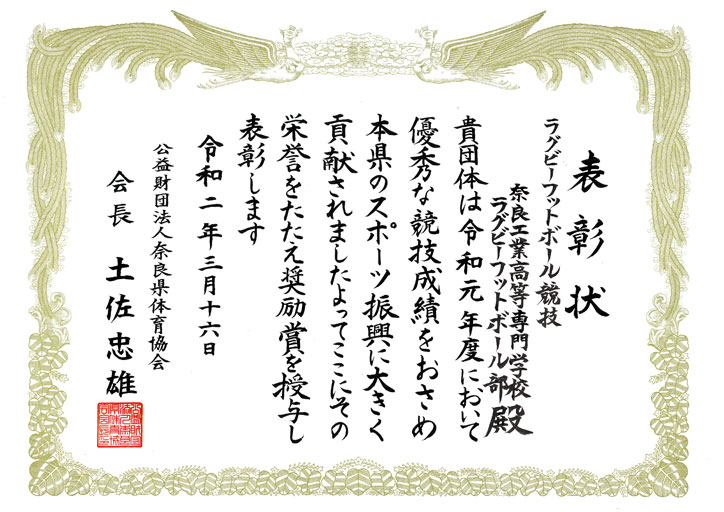 表彰状
ラグビーフットボール競技
奈良工業高等専門学校
ラグビーフットボール部殿
貴団体は令和元年度において
優秀な競技成績をおさめ
本県のスポーツ振興に大きく
貢献されましたよってここにその
栄誉をたたえ奨励賞を授与し
表彰します
令和二年三月十六日
公益財団法人奈良県体育協会
会長 土佐忠雄